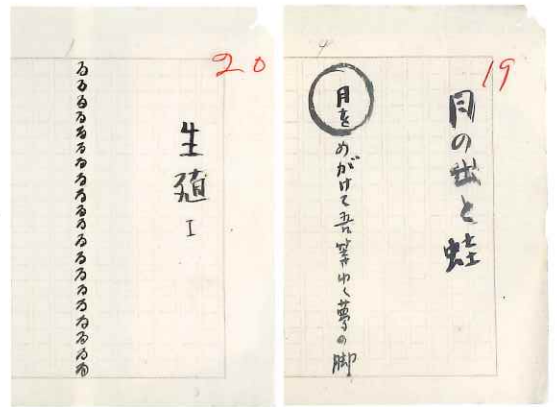 19
月の出と蛙
月をめがけて吾等ゆく夢の脚
20
生殖 I
るるるるるるるるるるるるるるるるるるるる